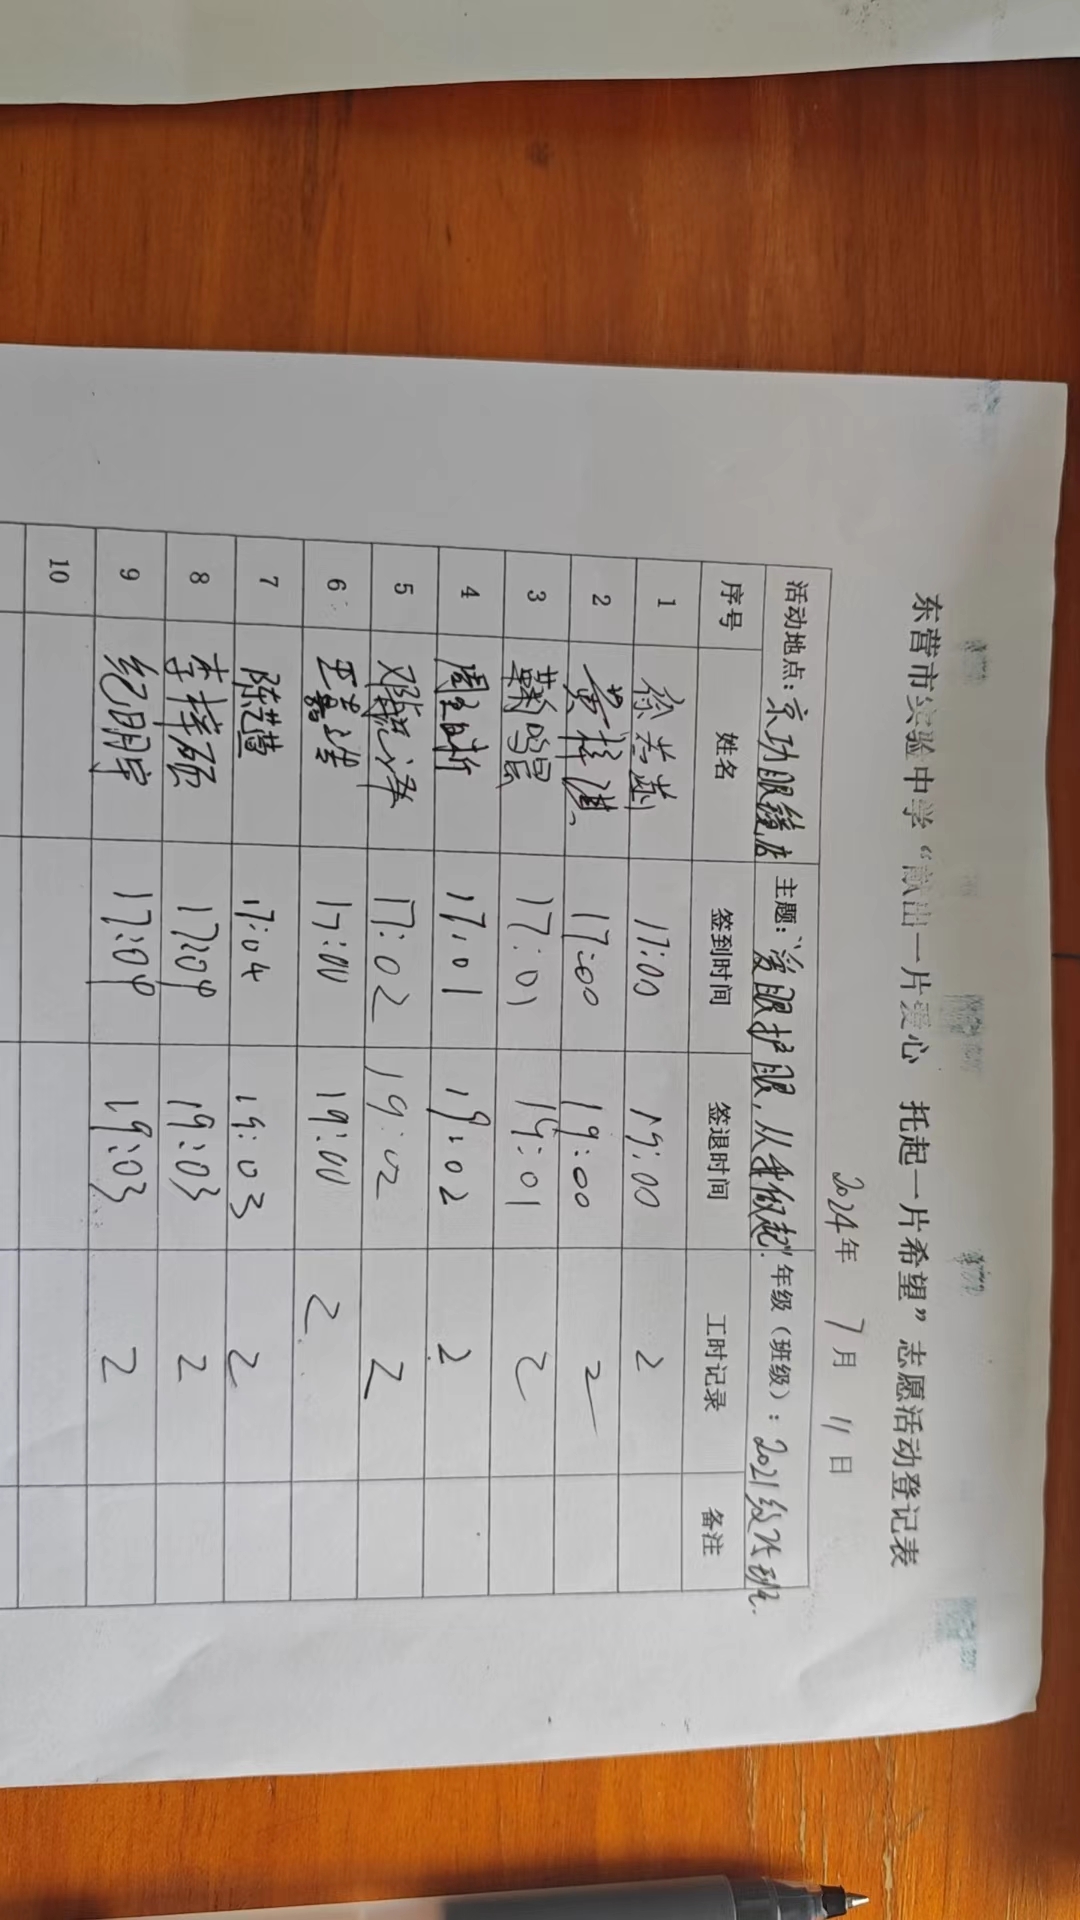 东营市实验中学“献出一片爱心 托起一片希望”志愿活动登记表
2024年 7月 11日
活动地点：京功眼镜店 主题：“爱眼护眼，从我做起” 年级（班级）：2021级25班
序号 姓名 签到时间 签退时间 工时记录 备注
1 徐 17:00 19:00 2
2 黄梓淇 17:00 19:00 2
3 鞠鸣宸 17:01 19:01 2
4 周昕 17:01 19:02 2
5 邓 17:02 19:02 2
6 王 17:00 19:00 2
7 陈艺萱 17:04 19:03 2
8 李梓硕 17:04 19:03 2
9 纪明宇 17:04 19:03 2
10